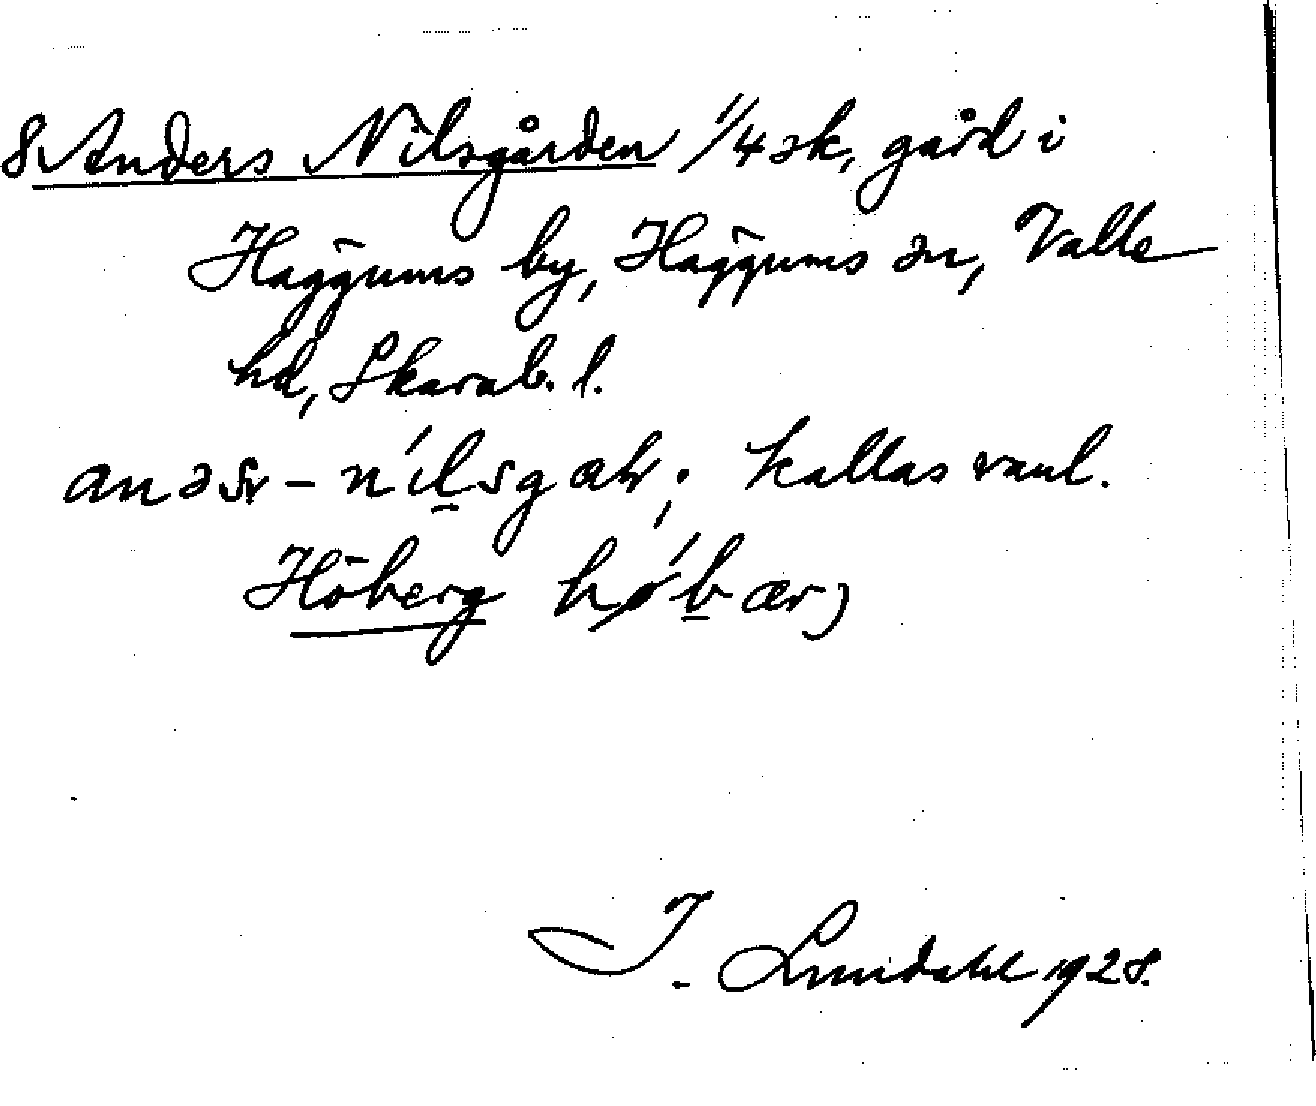 8 Anders Nilsgården 1/4 sk, gård i
Häggums by, Häggums sn, Valle
hd, Skarab. l.
Kallas vanl.
Höberg
I. Lundahl 1928.